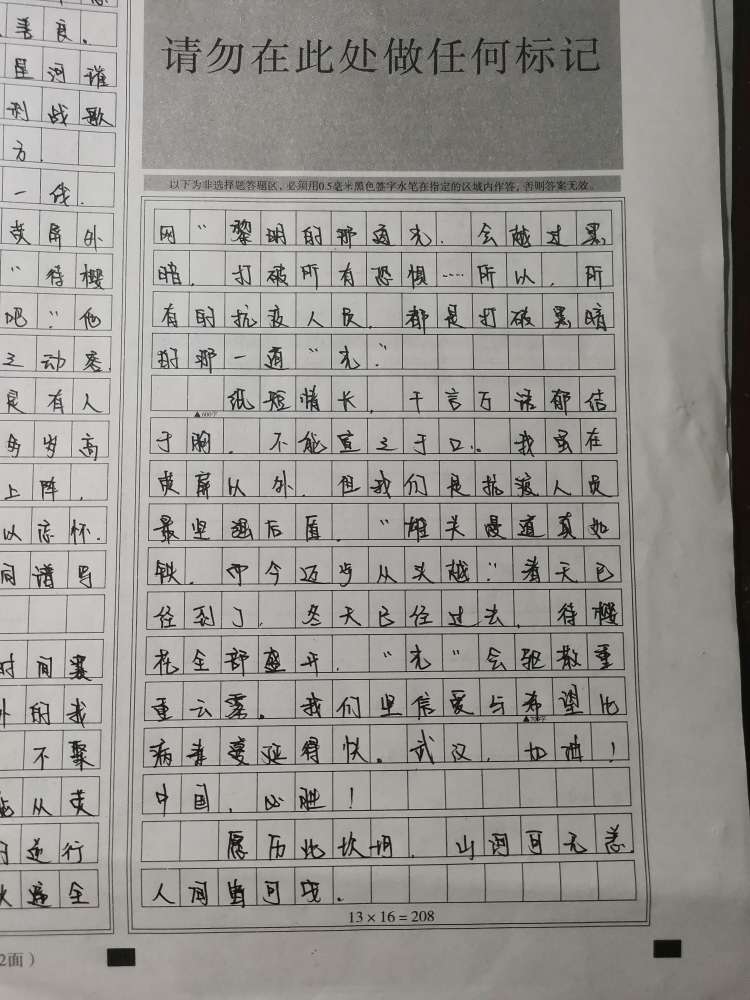 善良.
星河谁
刑战歌
方.
一线.
荧屏外
“待樱
吧.”他
之动容.
是有人
岁高
上阵,
以忘怀.
间谱写
时间赛
外的我
不聚
能从荧
逆行
火遍全
2面)
请勿在此处做任何标记
以下为非选择题答题区,必须用0.5毫米黑色签字水笔在指定的区域内作答,否则答案无效。
网“黎明的那道光,会越过黑
暗,打破所有恐惧……所以,所
有的抗疫人员,都是打破黑暗
的那一道“光.”
纸短情长,千言万语郁结
▲600字
于胸,不能宣之于口。我虽在
荧屏以外,但我们是抗疫人员
最坚强后盾.“雄关漫道真如
铁,而今迈步从头越.”春天已
经到了,冬天已经过去,待樱
花全部盛开,“光”会驱散重
重云雾。我们坚信爱与希望比
病毒蔓延得快。武汉,加油!
中国,必胜!
愿历此坎坷,山河可无恙.
人间皆可
13×16=208